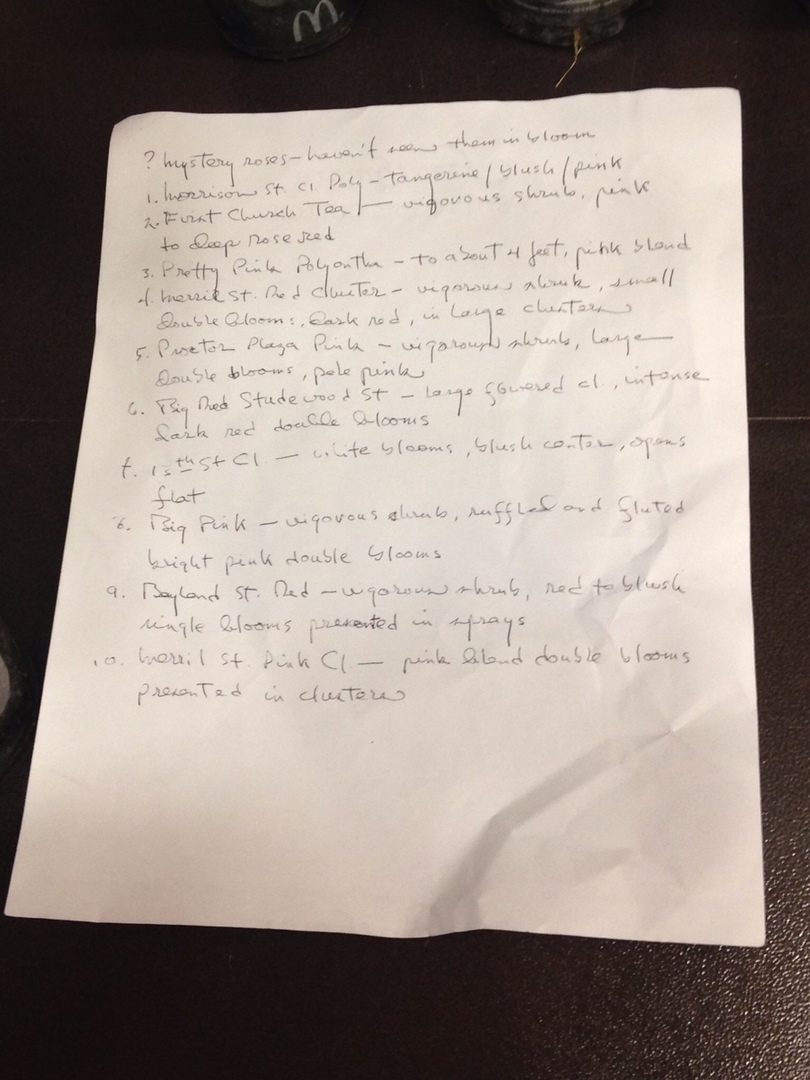 ? Mystery roses - haven't seen them in bloom
1. Morrison St. Cl. Poly - tangerine/blush/pink
2. First Church Tea - vigorous shrub, pink
to deep rose red
3. Pretty Pink Polyantha - to about 4 feet, pink blend
4. Merril St. Red Cluster - vigorous shrub, small
double blooms, dark red, in large clusters
5. Proctor Plaza Pink - vigorous shrub, large
double blooms, pale pink
6. Big Red Studewood St - large flowered cl., intense
dark red double blooms
7. 15th St Cl. - white blooms, blush center, opens
flat
8. Big Pink - vigorous shrub, ruffled and fluted
bright pink double blooms
9. Bayland St. Red - vigorous shrub, red to blush
single blooms presented in sprays
10. Merril St. Pink Cl. - pink blend double blooms
presented in clusters